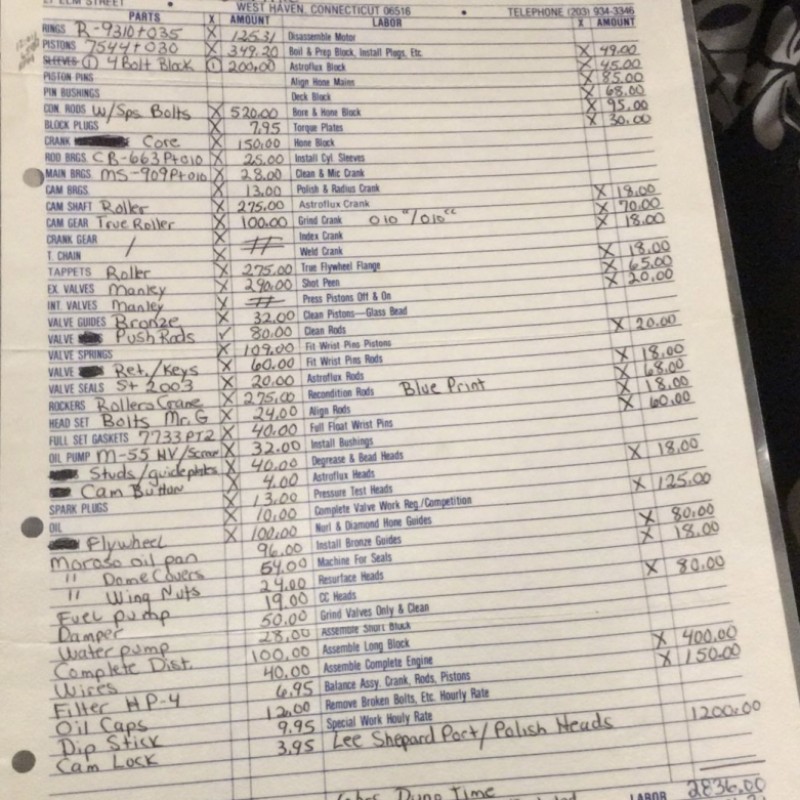 27 ELM STREET • WEST HAVEN, CONNECTICUT 06516 • TELEPHONE (203) 934-3346
PARTS X AMOUNT LABOR X AMOUNT
RINGS R-9310+035 X 125.31 Disassemble Motor
PISTONS 7544+030 X 349.20 Boil & Prep Block, Install Plugs, Etc. X 49.00
SLEEVES ① 4 Bolt Block ① 200.00 Astroflux Block X 45.00
PISTON PINS Align Hone Mains X 85.00
PIN BUSHINGS Deck Block X 68.00
CON. RODS w/Sps Bolts X 520.00 Bore & Hone Block X 95.00
BLOCK PLUGS X 7.95 Torque Plates X 30.00
CRANK Core X 150.00 Hone Block
ROD BRGS. CB-663 P+010 X 25.00 Install Cyl. Sleeves
MAIN BRGS MS-909P+010 X 28.00 Clean & Mic Crank
CAM BRGS. X 13.00 Polish & Radius Crank X 18.00
CAM SHAFT Roller X 275.00 Astroflux Crank X 70.00
CAM GEAR True Roller X 100.00 Grind Crank 010"/010" X 18.00
CRANK GEAR X Index Crank
T. CHAIN / X Weld Crank X 18.00
TAPPETS Roller X 275.00 True Flywheel Flange X 65.00
EX. VALVES Manley X 290.00 Shot Peen X 20.00
INT. VALVES Manley X Press Pistons Off & On
VALVE GUIDES Bronze X 32.00 Clean Pistons—Glass Bead
VALVE Push Rods ✓ 80.00 Clean Rods X 20.00
VALVE SPRINGS X 109.00 Fit Wrist Pins Pistons
VALVE Ret./Keys X 60.00 Fit Wrist Pins Rods X 18.00
VALVE SEALS St 2003 X 20.00 Astroflux Rods X 68.00
ROCKERS Rollers Crane X 275.00 Recondition Rods Blue Print X 18.00
HEAD SET Bolts Mr. G X 24.00 Align Rods X 60.00
FULL SET GASKETS 7733PT2 X 40.00 Full Float Wrist Pins
OIL PUMP M-55 HV/Screen X 32.00 Install Bushings
Studs/guideplates X 40.00 Degrease & Bead Heads X 18.00
Cam Button X 4.00 Astroflux Heads
SPARK PLUGS X 13.00 Pressure Test Heads X 125.00
OIL X 10.00 Complete Valve Work Reg./Competition
Flywheel X 100.00 Nurl & Diamond Hone Guides X 80.00
Moroso oil pan 96.00 Install Bronze Guides X 18.00
" Dome Covers 54.00 Machine For Seals
" Wing Nuts 24.00 Resurface Heads X 80.00
Fuel pump 19.00 CC Heads
Damper 50.00 Grind Valves Only & Clean
Water pump 28.00 Assemble Short Block
Complete Dist. 100.00 Assemble Long Block X 400.00
Wires 40.00 Assemble Complete Engine X 150.00
Filter HP-4 6.95 Balance Assy, Crank, Rods, Pistons
Oil Caps 12.00 Remove Broken Bolts, Etc. Hourly Rate
Dip Stick 9.95 Special Work Houly Rate 1200.00
Cam Lock 3.95 Lee Shepard Port/Polish Heads
Dyno Time
LABOR 2836.00